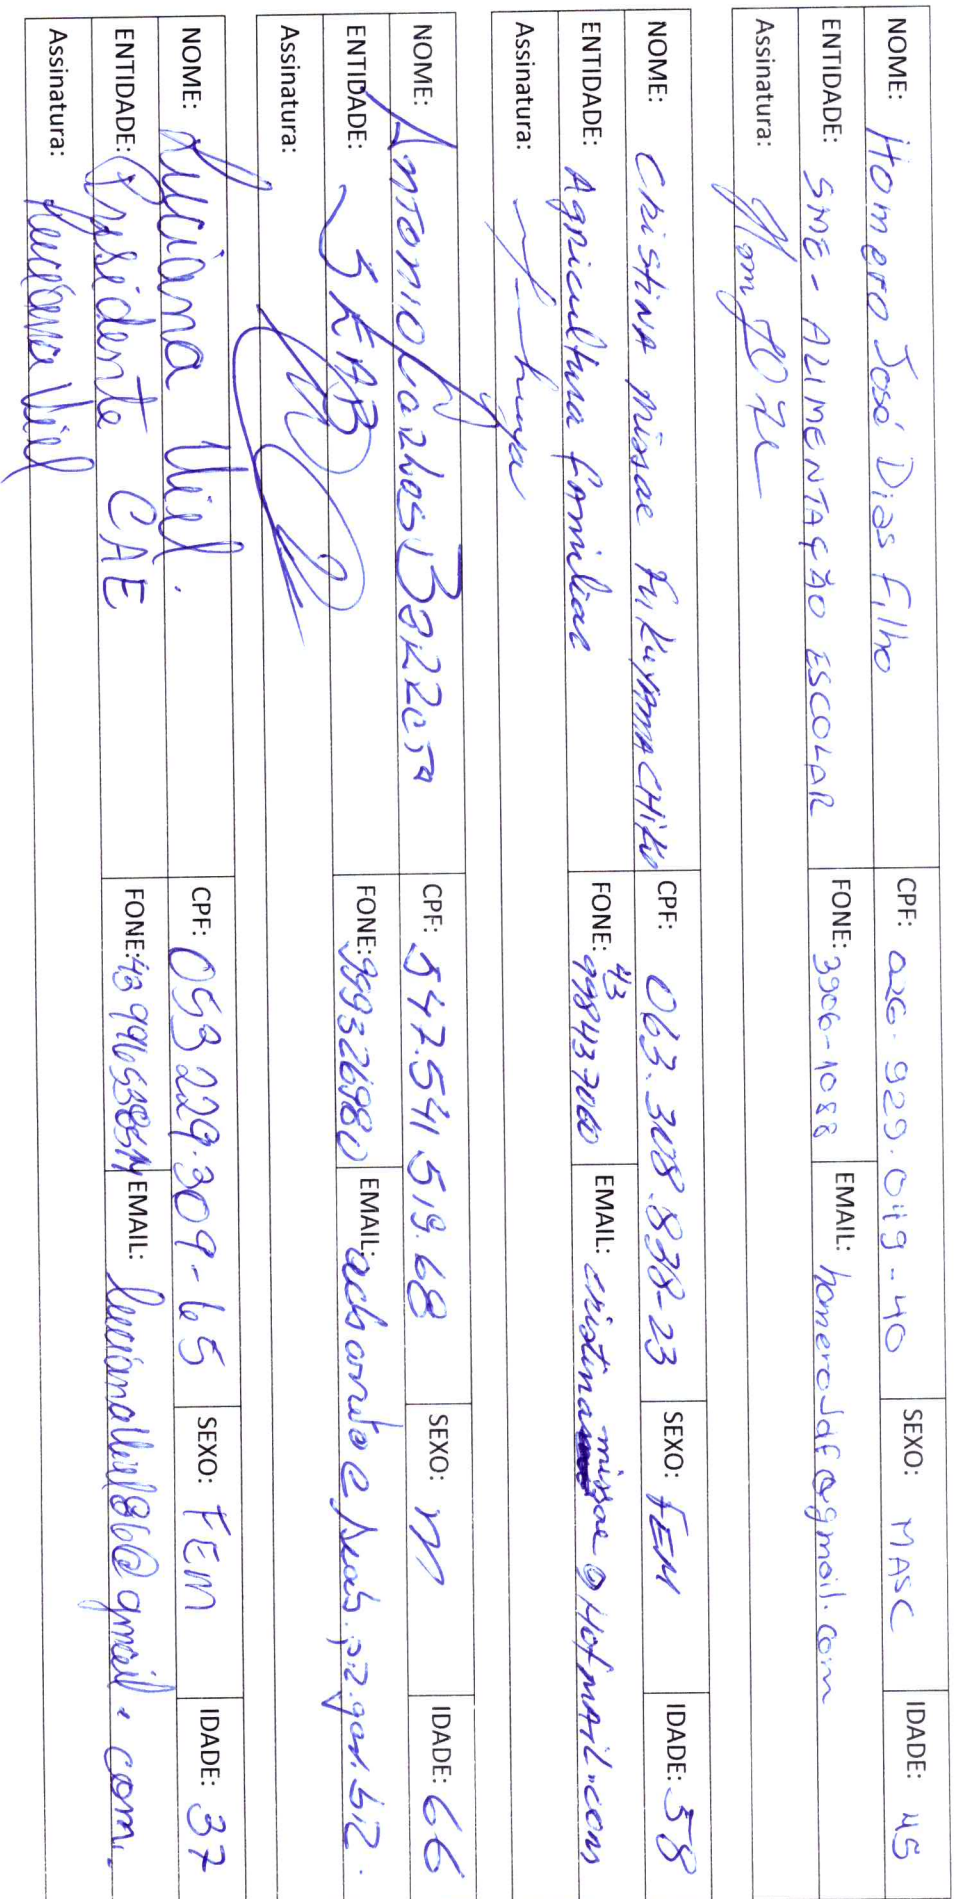 NOME: Homero José Dias Filho CPF: 026.929.049-40 SEXO: MASC IDADE: 45
ENTIDADE: SME - ALIMENTAÇÃO ESCOLAR FONE: 3906-1088 EMAIL: homerojdf@gmail.com
Assinatura:
NOME: Cristina Missae Fukuyama Chiku CPF: 063.308.838-23 SEXO: FEM IDADE: 58
ENTIDADE: Agricultura Familiar FONE: 43 998437000 EMAIL: cristinamissae@Hotmail.com
Assinatura:
NOME: Antonio Carlos Barreto CPF: 547.541.519.68 SEXO: M IDADE: 66
ENTIDADE: SEAB FONE: 999326980 EMAIL:
Assinatura:
NOME: Luciana Viel. CPF: 053 229.309-65 SEXO: FEM IDADE: 37
ENTIDADE: Presidente CAE FONE: EMAIL: lucianaviel86@gmail.com.
Assinatura: Luciana Viel